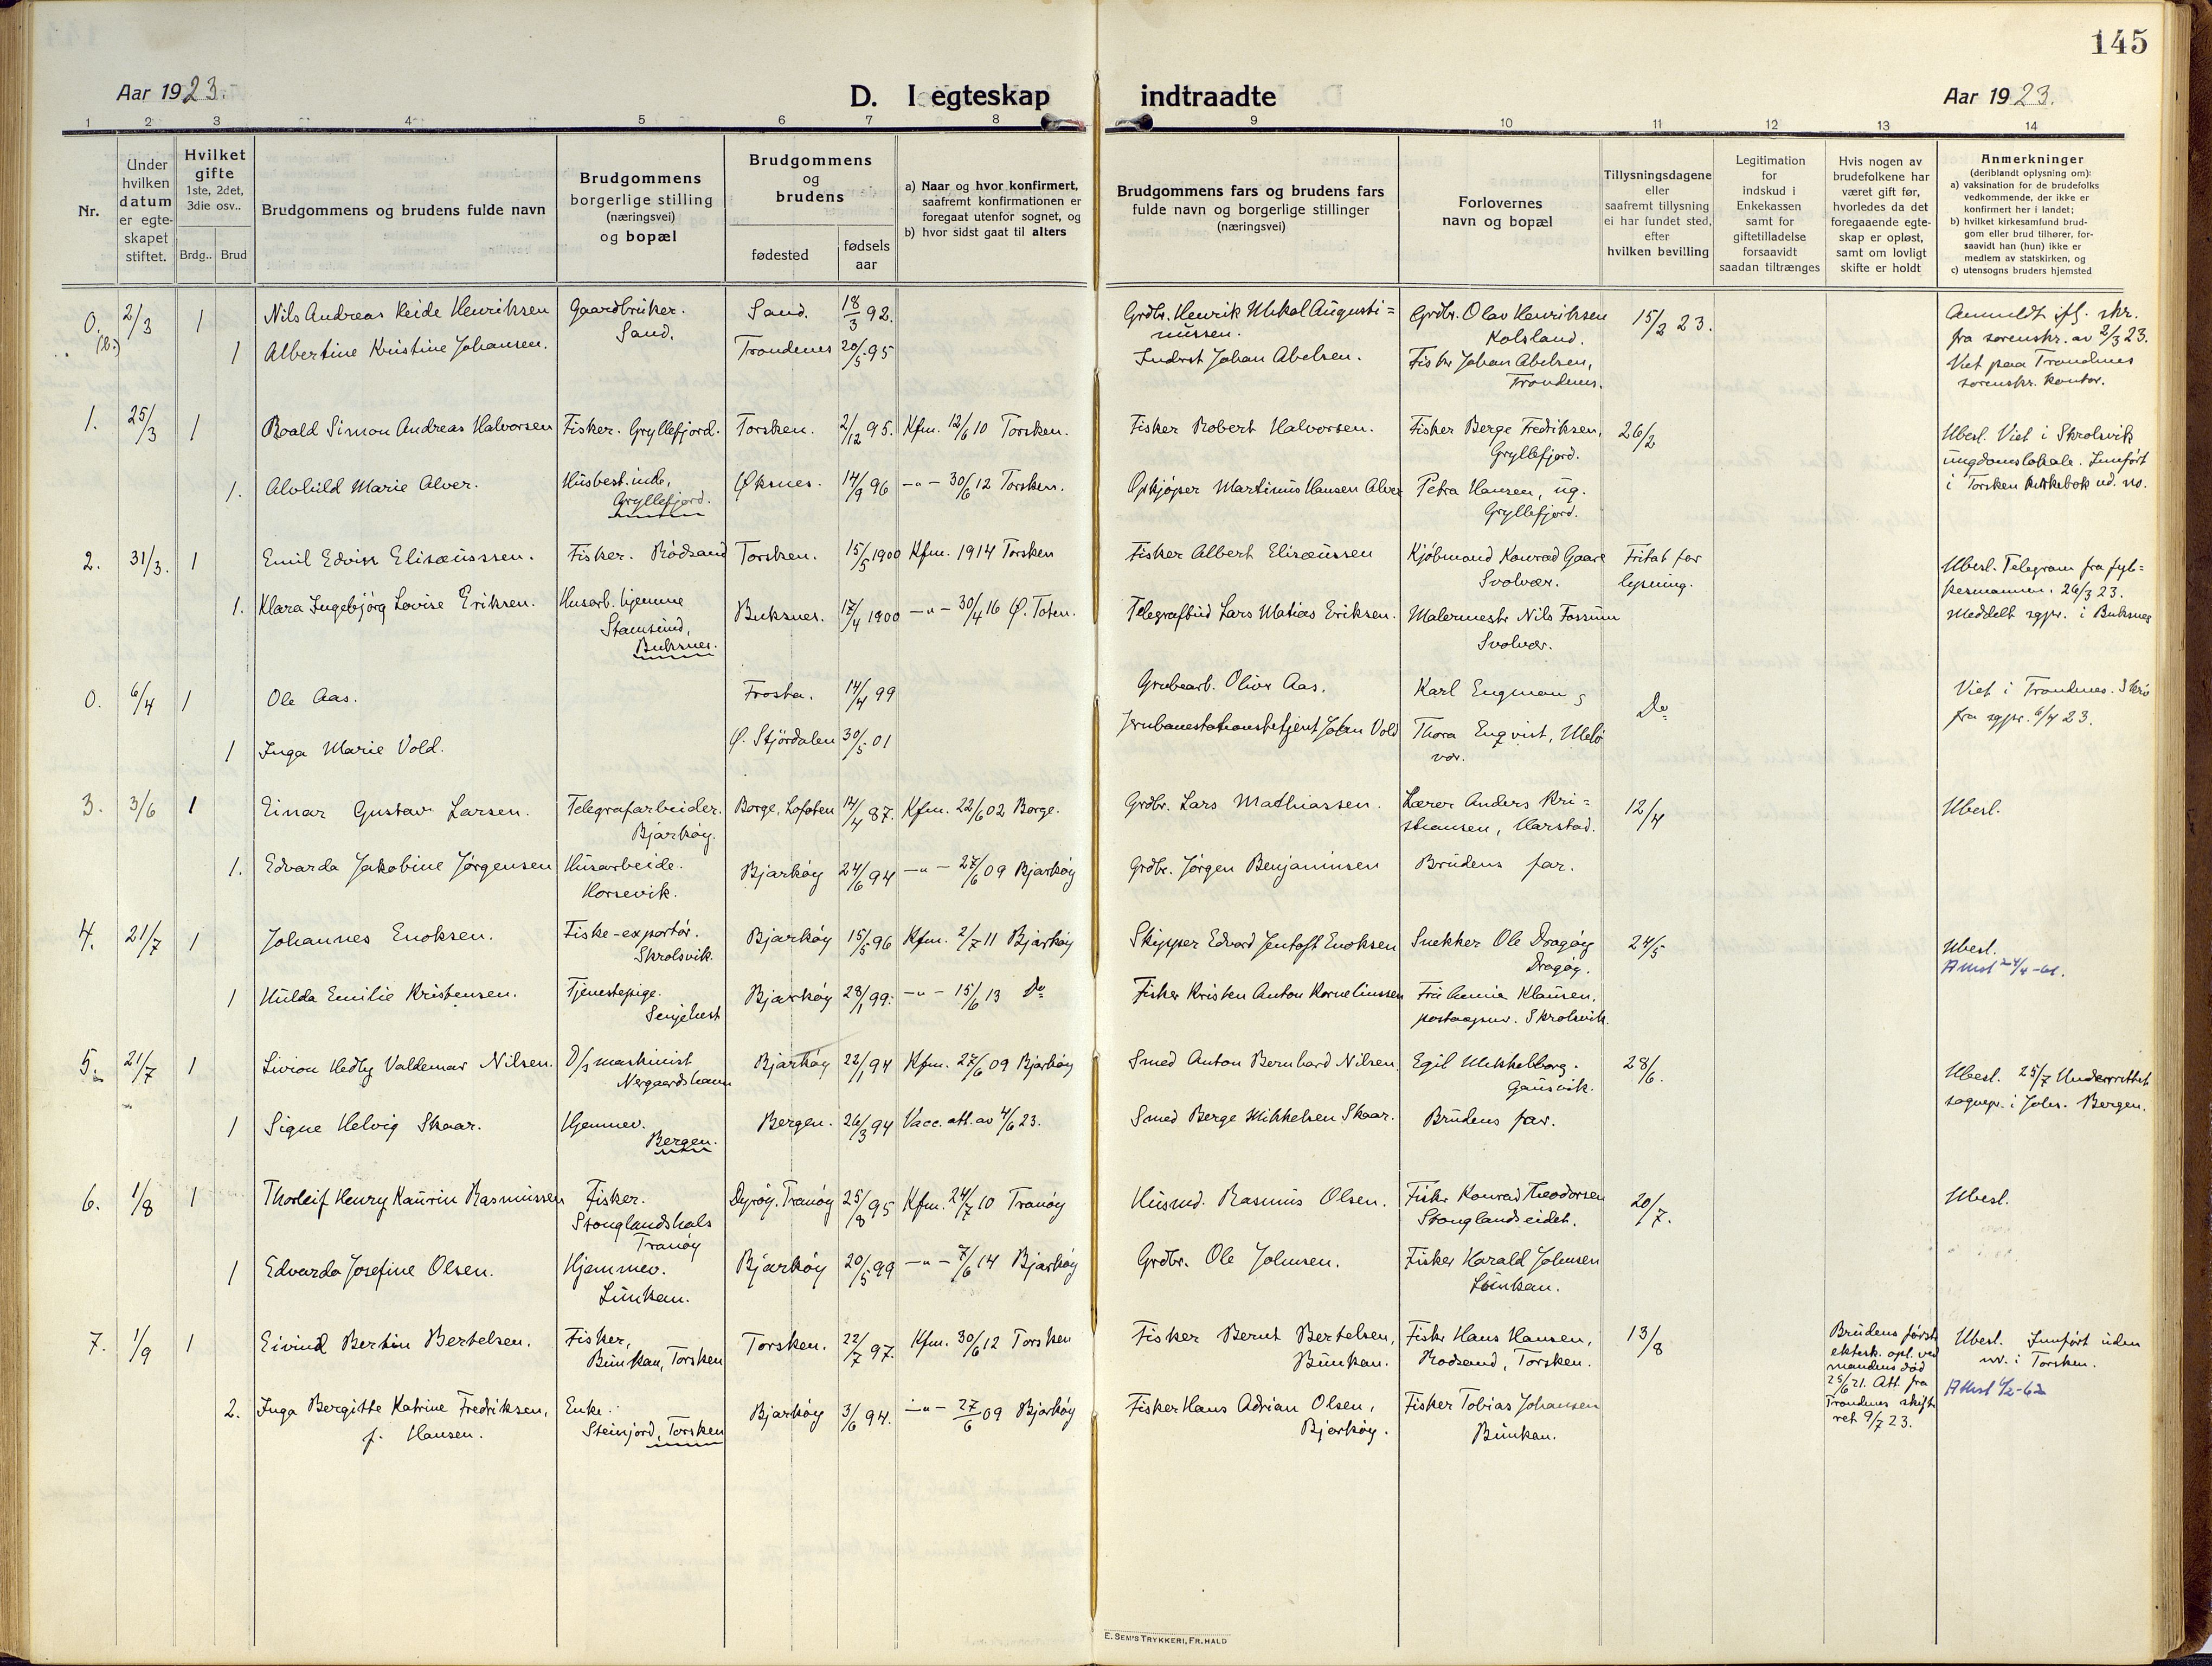 145
Aar 1923.
D. I egteskap indtraadte
Aar 1923.
1 2 3 4 5 6 7 8 9 10 11 12 13 14
Nr.
Under
hvilken
datum
er egte-
skapet
stiftet.
Hvilket
gifte
1ste, 2det,
3die osv..
Brdg.. Brud
Brudgommens og brudens fulde navn
Brudgommens
borgerlige stilling
(næringsvei)
og bopæl
Brudgommens
og
brudens
fødested
fødsels
aar
a) Naar og hvor konfirmert,
saafremt konfirmationen er
foregaat utenfor sognet, og
b) hvor sidst gaat til alters
Brudgommens fars og brudens fars
fulde navn og borgerlige stillinger
(næringsvei)
Forlovernes
navn og bopæl
Tillysningsdagene
eller
saafremt tillysning
ei har fundet sted,
efter
hvilken bevilling
Legitimation
for
indskud i
Enkekassen
samt for
giftetilladelse
forsaavidt
saadan tiltrænges
Hvis nogen av
brudefolkene har
været gift før,
hvorledes da det
foregaaende egte-
skap er opløst,
samt om lovligt
skifte er holdt
Anmerkninger
(deriblandt oplysning om):
a) vaksination for de brudefolks
vedkommende, der ikke er
konfirmert her i landet;
b) hvilket kirkesamfund brud-
gom eller brud tilhører, for-
saavidt han (hun) ikke er
medlem av statskirken, og
c) utensogns bruders hjemsted
0. 2/3 1 Nils Andreas Heide Henriksen Gaardbruker. Sand. Sand. 18/3 92. Grdbr. Henrik Mikal Augusti=
nussen. Grdbr. Olav Henriksen
Kolsland. 15/2 23. Anmeldt ifl. skr.
fra sorenskr. av 2/3 23.
Viet paa Trondenes
sorenskr. kontor.
1 Albertine Kristine Johansen. Trondenes 20/5 95 Inderst Johan Abelsen. Fisker Johan Abelsen,
Trondenes.
1. 25/3 1 Roald Simon Andreas Halvorsen Fisker. Gryllefjord. Torsken. 2/12 95. Kfm. 12/6 10 Torsken. Fisker Robert Halvorsen. Fisker Berge Fredriksen,
Gryllefjord. 26/2 Ubesl. Viet i Skrolsvik
ungdomslokale. Innført
i Torsken kirkebok ud. no.
1. Alvhild Marie Alver. Husbest.inde,
Gryllefjord. Øksnes. 14/9 96 -"- 30/6 12 Torsken. Opkjøper Martinus Hansen Alver Petra Hansen, ug.
Gryllefjord.
2. 31/3. 1 Emil Edvin Elisæusssen. Fisker. Rødsand Torsken. 15/5 1900 Kfm. 1914 Torsken Fisker Albert Elisæussen Kjøbmand Konrad Gaare
Svolvær. Fritat for
lysning. Ubesl. Telegram fra fyl=
kesmannen. 26/3 23.
Meddelt sgpr. i Buksnes
1. Klara Ingebjørg Lovise Eriksen. Husarb. hjemme
Stamsund,
Buksnes. Buksnes. 17/4 1900 -"- 30/4 16 Ø. Toten. Telegrafbud Lars Matias Eriksen. Malermestr Nils Fossum
Svolvær.
0. 6/4 1 Ole Aas. Frosta. 14/4 99 Grubearb. Oliver Aas. Karl Engman og Do Viet i Trondenes. Skriv
fra sgpr. 6/4 23.
1 Inga Marie Vold. Ø. Stjørdalen 30/5 01 Jernbanestationsbetjent Johan Vold Thora Enqvist,
3. 3/6 1 Einar Gustav Larsen. Telegrafarbeider.
Bjarkøy. Borge, Lofoten 14/4 87. Kfm. 22/6 02 Borge. Grdbr. Lars Mathiassen. Lærer Anders Kri=
stiansen, Harstad. 12/4 Ubesl.
1. Edvarda Jakobine Jørgensen Husarbeide.
Horsevik. Bjarkøy 24/6 94 -"- 27/6 09 Bjarkøy Grdbr. Jørgen Benjaminsen Brudens far.
4. 21/7 1 Johannes Enoksen. Fiske-exportør.
Skrolsvik. Bjarkøy 15/5 96 Kfm. 2/7 11 Bjarkøy Skipper Edvard Jentoft Enoksen Snekker Ole Dragøy
Dragøy. 24/5 Ubesl.
Attest 24/4-61.
1 Hulda Emilie Kristensen. Tjenestepige.
Senjehest Bjarkøy 28/1 99. -"- 15/6 13 Do Fisker Kristen Anton Kornelinssen Fru Annie Klausen,
postaapner. Skrolsvik.
5. 21/7 1 Livion Hedly Valdemar Nilsen. D/s maskinist
Nergaardshavn Bjarkøy 22/1 94 Kfm. 27/6 09 Bjarkøy Smed Anton Bernhard Nilsen. Egil Mikkelborg.
Gausvik. 28/6. Ubesl. 25/7 Underrettet
sognepr. i Johs. Bergen.
1 Signe Helvig Skaar. Hjemmev.
Bergen. Bergen. 26/3 94 Vacc. att. av 4/6 23. Smed Berge Mikkelsen Skaar. Brudens far.
6. 1/8 1 Thorleif Henry Kaurin Rasmussen Fisker.
Stonglandshals
Tranøy Dyrøy. Tranøy 25/8 95 Kfm. 24/7 10 Tranøy Husmd. Rasmus Olsen. Fisker Konrad Theodorsen
Stonglandseidet. 20/7. Ubesl.
1 Edvarda Josefine Olsen. Hjemmev.
Lunkan. Bjarkøy 20/5 99 -"- 7/6 14 Bjarkøy Grdbr. Ole Johnsen. Fisker Harald Johnsen
Lunkan.
7. 1/9 1 Eivind Bertin Bertelsen. Fisker,
Bunkan, Torsken Torsken. 22/7 97. Kfm. 30/6 12 Torsken Fisker Bernt Bertelsen,
Bunkan. Fisker Hans Hansen,
Rodsand, Torsken. 13/8 Brudens første
ektesk. opl. ved
mandens død
25/6 21. Att. fra
Trondenes skift
ret 9/7 23. Ubesl. Innført uden
nr. i Torsken.
Attest 6/2-62
2. Inga Bergitte Katrine Fredriksen,
f. Hansen. Enke.
Steinfjord, Torsken Bjarkøy 3/6 94. -"- 27/6 09 Bjarkøy Fisker Hans Adrian Olsen,
Bjarkøy. Fisker Tobias Johansen
Bunkan.
E. SEM'S TRYKKERI, FR. HALD